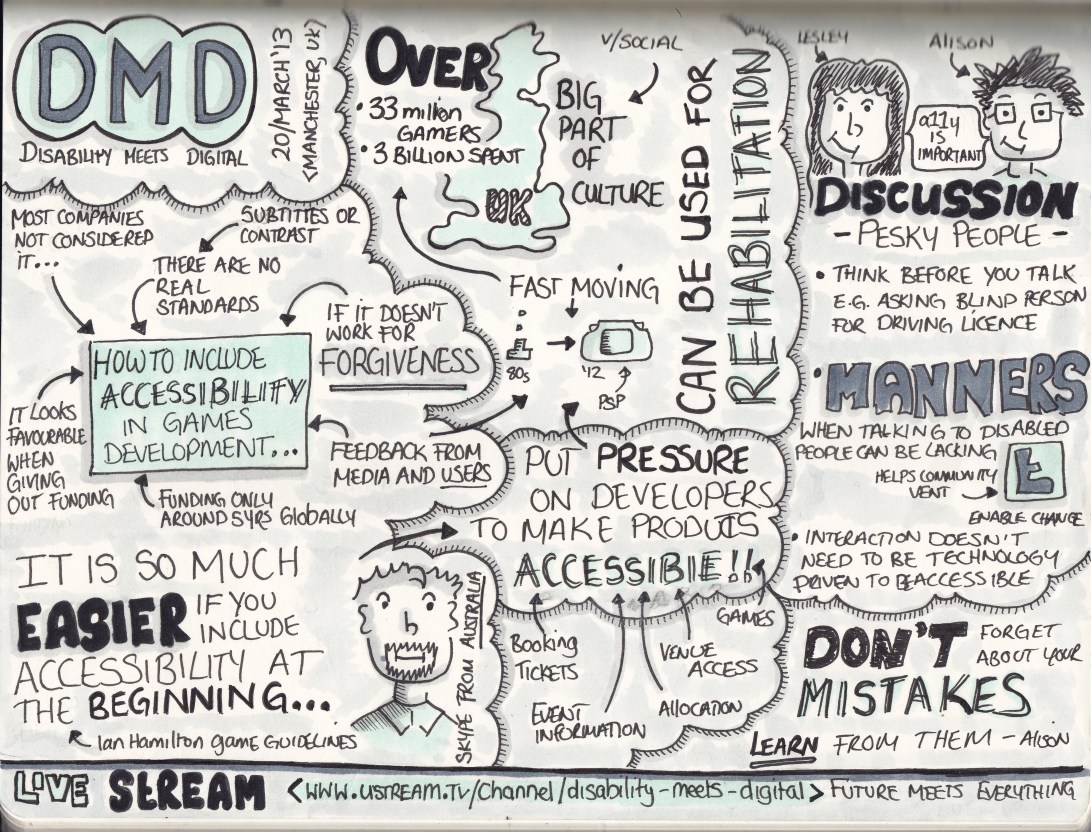 DMD
DISABILITY MEETS DIGITAL
20/MARCH'13
<MANCHESTER, UK>
OVER
• 33 million
GAMERS
• 3 BILLION SPENT
UK
V/SOCIAL
BIG
PART
OF
CULTURE
CAN BE USED FOR
REHABILITATION
LESLEY
ALISON
a11y
IS
IMPORTANT
DISCUSSION
- PESKY PEOPLE -
• THINK BEFORE YOU TALK
E.G. ASKING BLIND PERSON
FOR DRIVING LICENCE
• MANNERS
WHEN TALKING TO DISABLED
PEOPLE CAN BE LACKING
HELPS COMMUNITY
VENT
t
ENABLE CHANGE
• INTERACTION DOESN'T
NEED TO BE TECHNOLOGY
DRIVEN TO BE ACCESSIBLE
MOST COMPANIES
NOT CONSIDERED
IT...
SUBTITLES OR
CONTRAST
THERE ARE NO
REAL
STANDARDS
IF IT DOESN'T
WORK FOR
FORGIVENESS
HOW TO INCLUDE
ACCESSIBILITY
IN GAMES
DEVELOPMENT...
IT LOOKS
FAVOURABLE
WHEN
GIVING
OUT FUNDING
FUNDING ONLY
AROUND 5YRS GLOBALLY
FEEDBACK FROM
MEDIA AND USERS
FAST MOVING
80s
'12
PSP
PUT PRESSURE
ON DEVELOPERS
TO MAKE PRODUTS
ACCESSIBlE!!
Booking
TICKETS
EVENT
INFORMATION
ALLOCATION
VENUE
ACCESS
GAMES
IT IS SO MUCH
EASIER IF YOU
INCLUDE
ACCESSIBILITY AT
THE BEGINNING...
Ian Hamilton game GUIDELINES
SKYPE FROM AUSTRALIA
DON'T FORGET
ABOUT YOUR
MISTAKES
LEARN FROM THEM - ALISON
LIVE STREAM <WWW.USTREAM.TV/channel/disability-meets-digital> FUTURE MEETS EVERYTHING